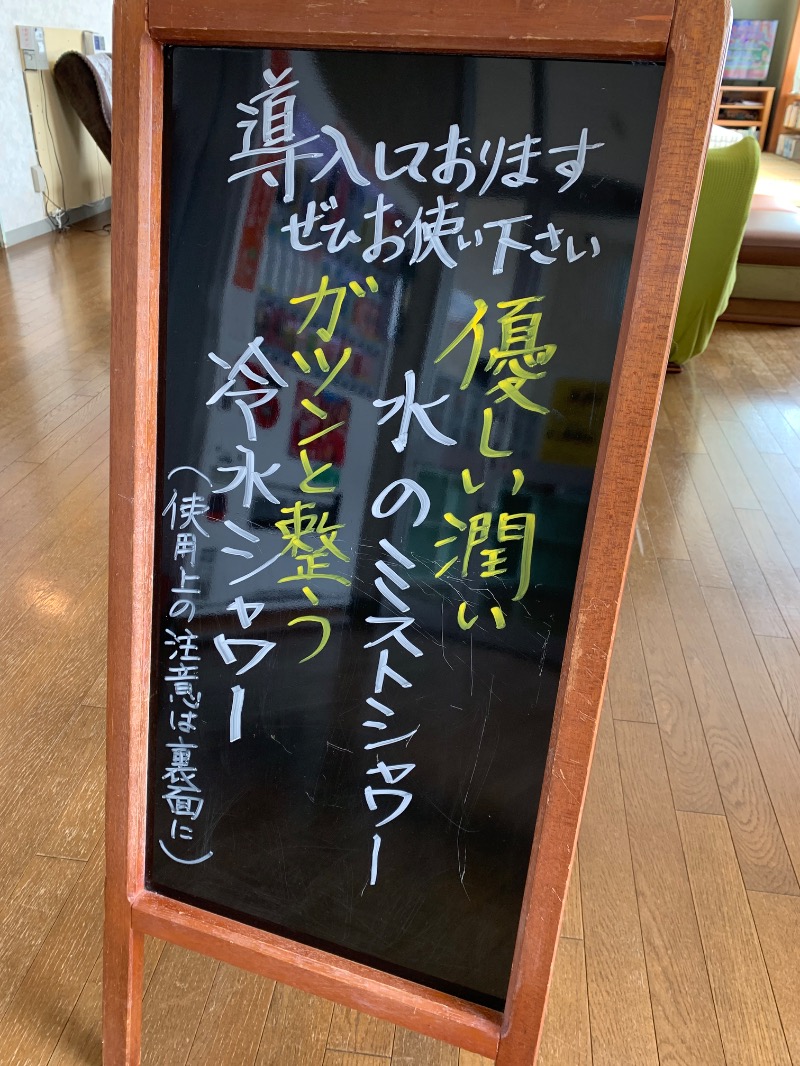 導入しております
ぜひお使い下さい
優しい潤い
水のミストシャワー
ガツンと整う
冷水シャワー
(使用上の注意は裏面に)